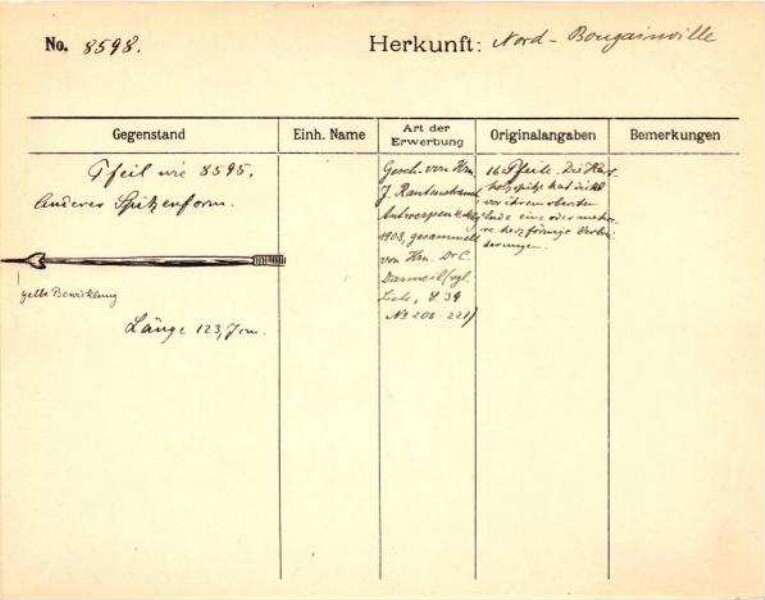 No. 8598.
Herkunft: Nord-Bougainville
Gegenstand
Einh. Name
Art der Erwerbung
Originalangaben
Bemerkungen
Pfeil wie 8595.
Anderes Spitzenform.
gelbe Bewicklung
Länge 123,7 cm.
Gesch. von Hrn.
J. Rautenstrauch
Antwerpen
1903, gesammelt
von Hrn. Dr. C.
(vgl.
Liste, S. 34
No 208-221)
16 Pfeile. Die Hart-
holzspitze hat dicht
vor ihrem obersten
Ende eine oder mehre-
re herzförmige Verbrei-
terungen.